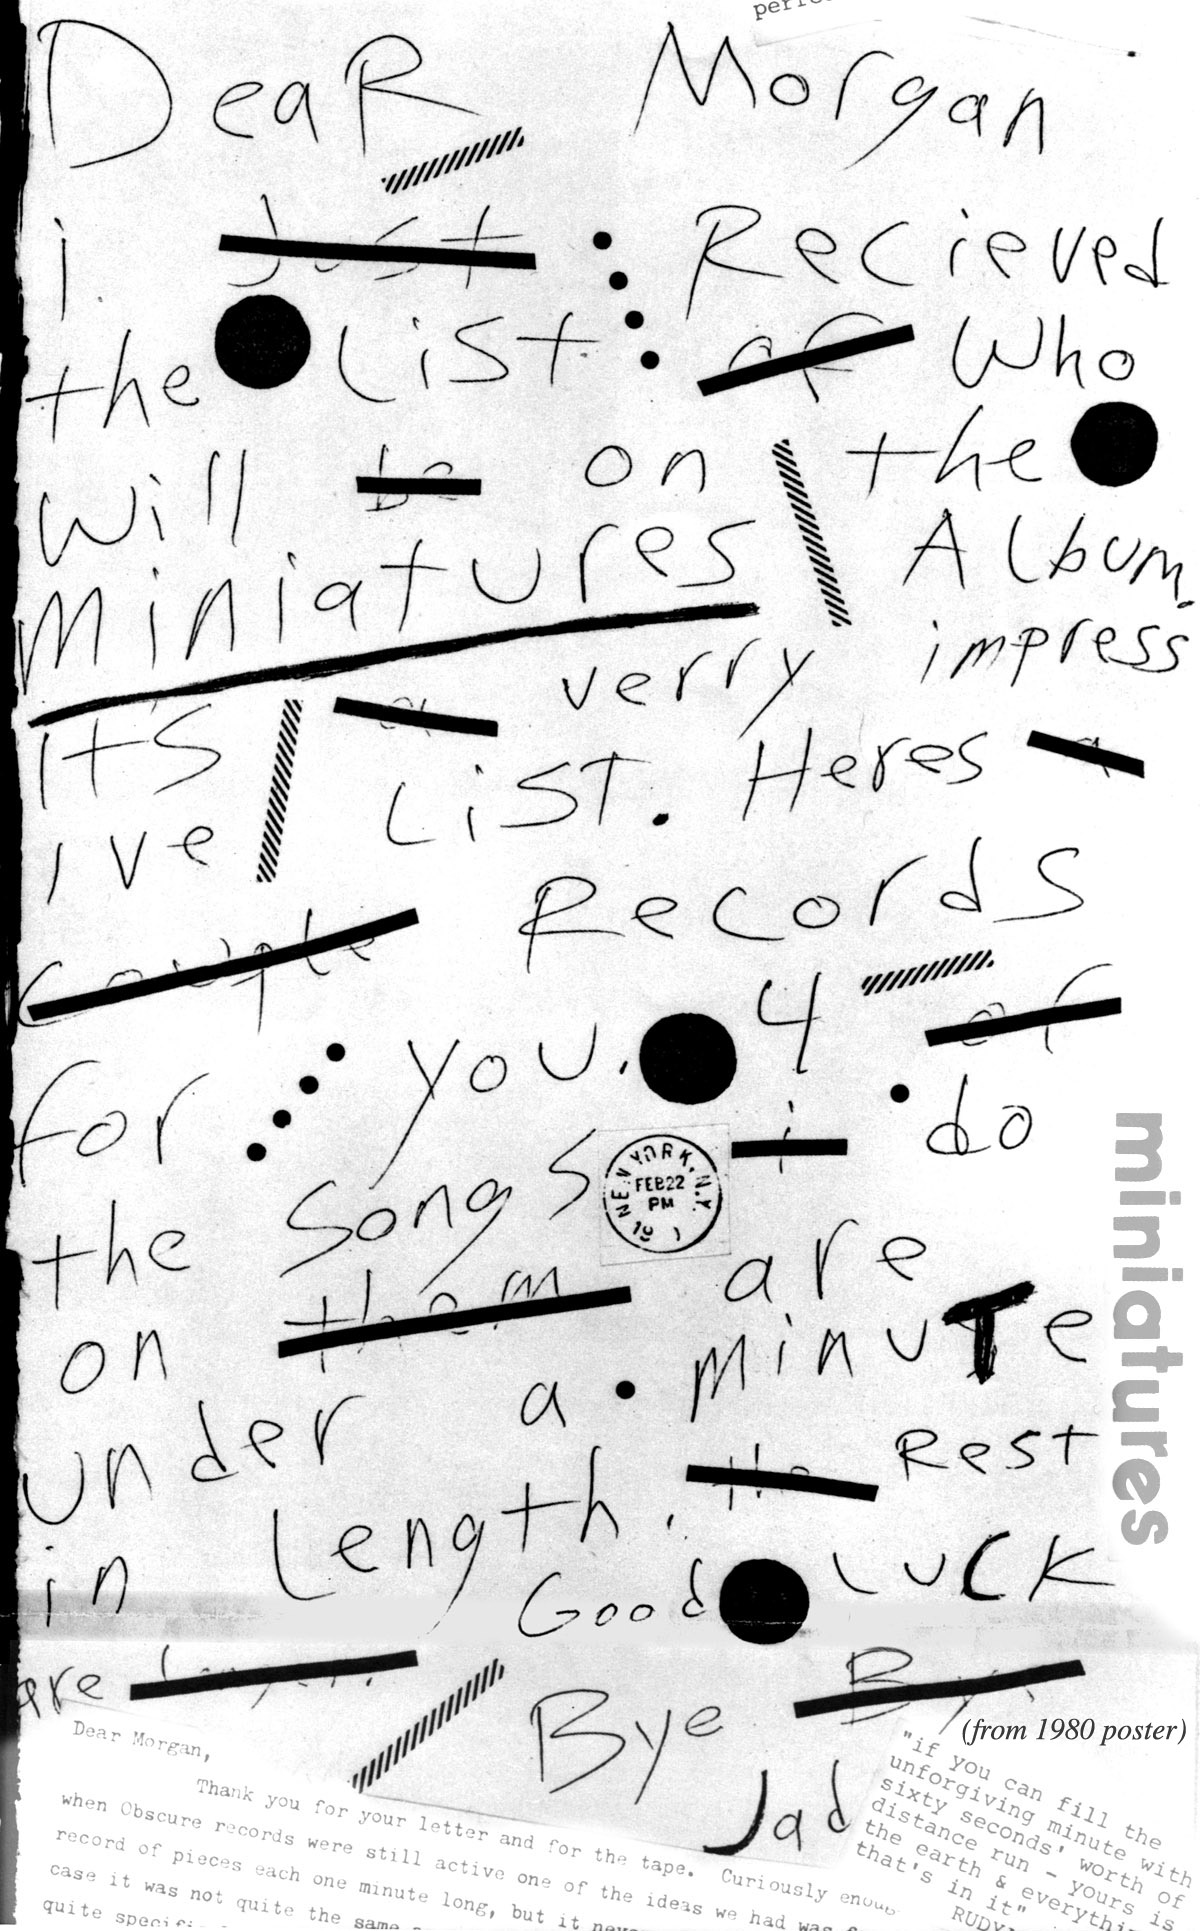 perio
Dear Morgan
i Just Recieved
the List of Who
will be on the
miniatures Album.
it's a verry impress
ive List. Heres a
couple Records
for you. 4 of
the Songs i do
on them are
under a minute
in Length. the Rest
are Good Luck
Bye Bye
Jad
NEW YORK, N.Y.
FEB22
PM
19
miniatures
(from 1980 poster)
Dear Morgan,
Thank you for your letter and for the tape. Curiously enou
when Obscure records were still active one of the ideas we had was
record of pieces each one minute long, but it neve
case it was not quite the same
quite specifi
"if you can fill the
unforgiving minute with
sixty seconds' worth of
distance run - yours is
the earth & everythi
that's in it"
RUDY